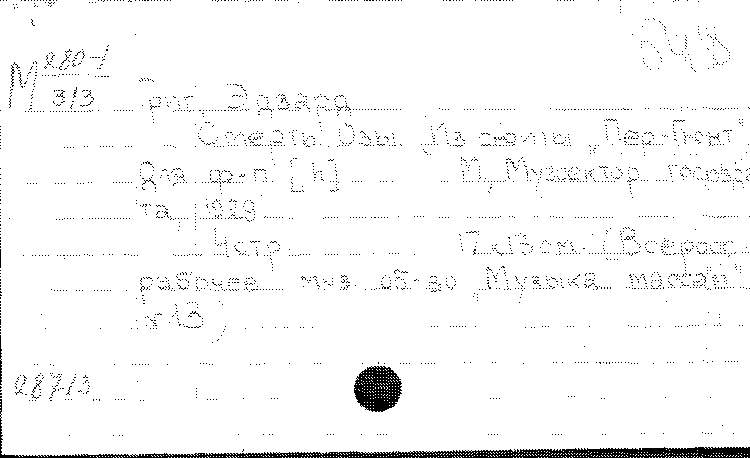 М 280-1
3/3
Григ, Эдвард
Смерть Озы (Из сюиты „Пер-Гюнт"
Для ф-п [h] М, Музсектор госизда
та, 1929
4 стр. 17х13 см. (Всеросс
рабочее муз. об-во „Музыка массам"
№ 13)
287/3